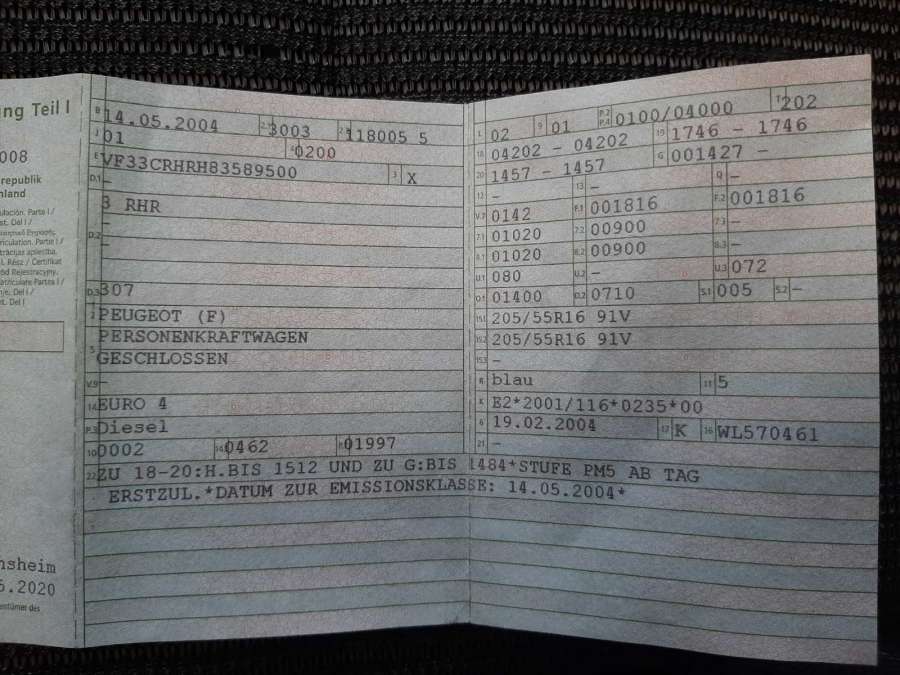 ng Teil I
008
republik
nland
nsheim
6.2020
B 14.05.2004 2.1 3003 2.2 118005 5
J 01 4 0200
E VF33CRHRH83589500 3 X
D.1 –
3 RHR
–
D.2 –
–
D.3 307
2 PEUGEOT (F)
PERSONENKRAFTWAGEN
5 GESCHLOSSEN
V.9 –
14 EURO 4
P.3 Diesel
10 0002 14.1 0462 P.1 01997
L 02 9 01 P.2 P.4 0100/04000 T 202
18 04202 - 04202 19 1746 - 1746
20 1457 - 1457 G 001427 -
12 – 13 – Q –
V.7 0142 F.1 001816 F.2 001816
7.1 01020 7.2 00900 7.3 –
8.1 01020 8.2 00900 8.3 –
U.1 080 U.2 – U.3 072
O.1 01400 O.2 0710 S.1 005 S.2 –
15.1 205/55R16 91V
15.2 205/55R16 91V
15.3 –
R blau 11 5
K E2*2001/116*0235*00
6 19.02.2004 17 K 16 WL570461
21 –
22 ZU 18-20:H.BIS 1512 UND ZU G:BIS 1484*STUFE PM5 AB TAG
ERSTZUL.*DATUM ZUR EMISSIONSKLASSE: 14.05.2004*